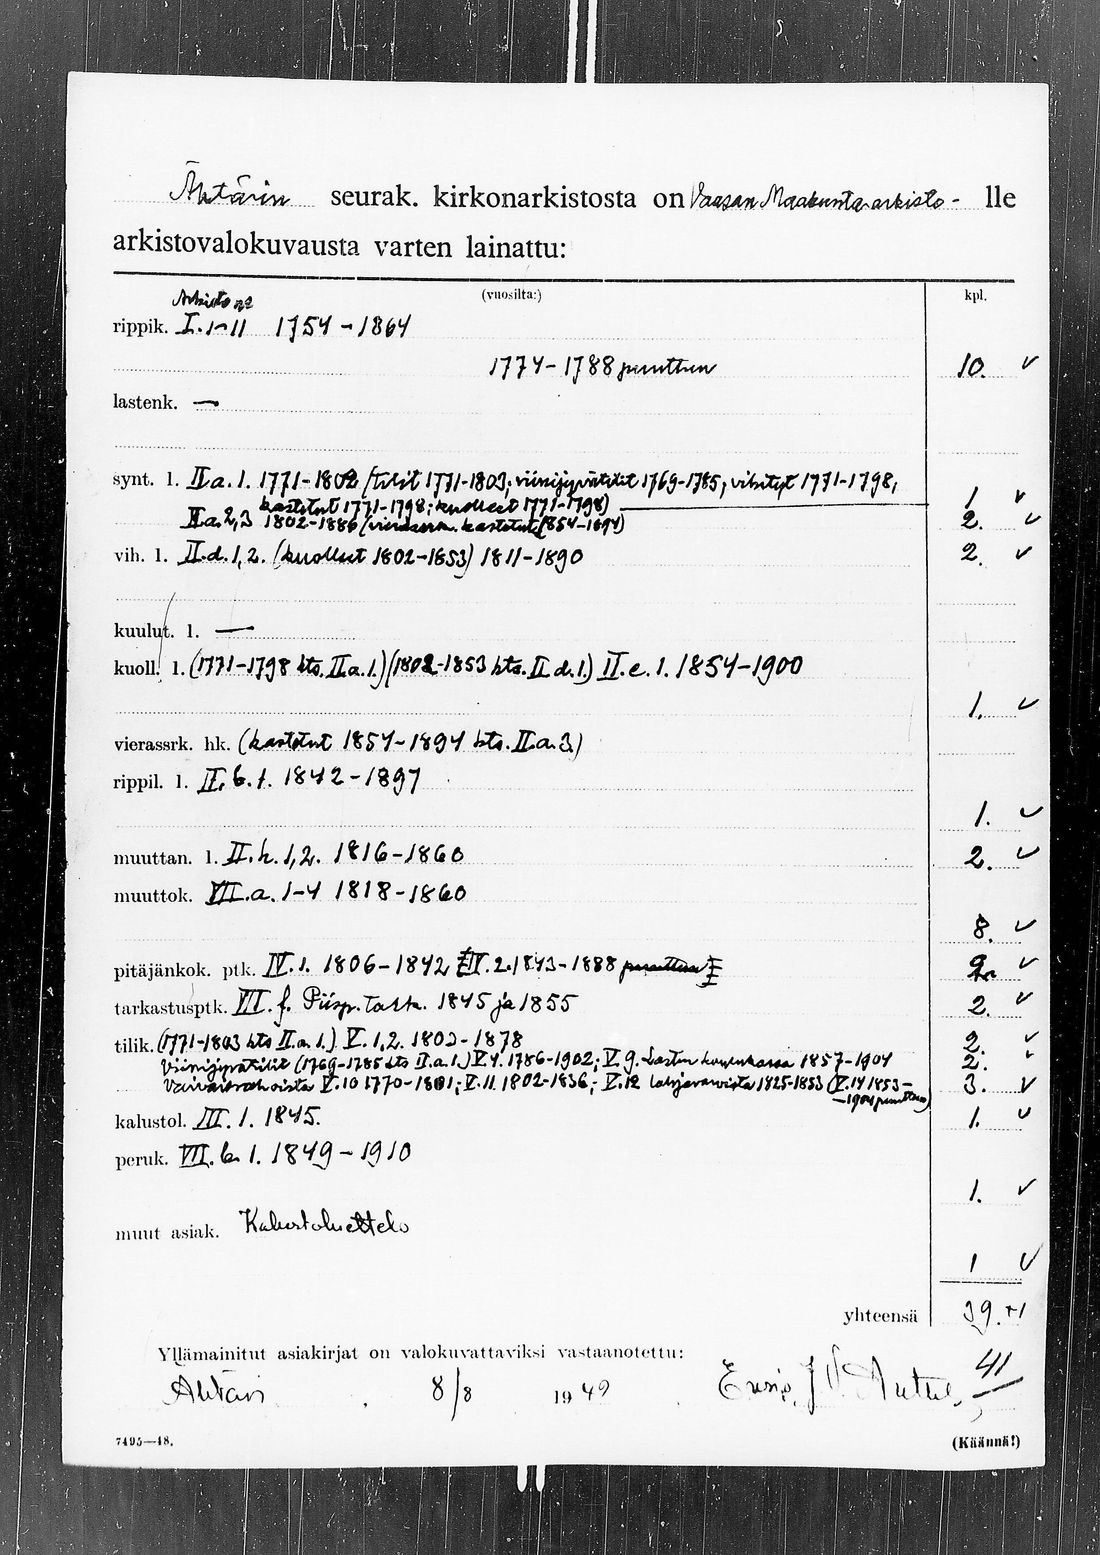 Ähtärin seurak. kirkonarkistosta on Vaasan Maakunta-arkisto- lle
arkistovalokuvausta varten lainattu:
Arkisto no (vuosilta:) kpl.
rippik. I. 1-11 1754-1864
1774-1788 puuttuu 10. ✓
lastenk. —
synt. l. II a. 1. 1771-1802 (tilit 1771-1803; viinijyvätilit 1769-1785; vihityt 1771-1798,
kastetut 1771-1798; kuolleet 1771-1798) 1 ✓
II a. 2,3 1802-1886 (vierassrk. kastetut 1854-1894) 2. ✓
vih. l. II.d. 1,2. (kuolleet 1802-1853) 1811-1890 2. ✓
kuulut. l. —
kuoll. l. (1771-1798 kts. II.a.1.) (1802-1853 kts. II d.1.) II.e.1. 1854-1900
1. ✓
vierassrk. hk. (kastetut 1854-1894 kts. II.a.3.)
rippil. l. II. b. 1. 1842-1897
1. ✓
muuttan. l. II. h. 1,2. 1816-1860 2. ✓
muuttok. VII.a. 1-4 1818-1860
8. ✓
pitäjänkok. ptk. IV.1. 1806-1842 IV.2. 1843-1888 puuttuu 2. ✓
tarkastusptk. VII. f. Piisp. tark. 1845 ja 1855 2. ✓
tilik. (1771-1803 kts II.a.1.) V. 1,2. 1802-1878 2. ✓
Viinijyvätilit (1769-1785 kts II.a.1.) V.4. 1786-1902; V.9. Lasten 1857-1904 2. ✓
Vaivaisrahoista V.10 1770-1801; V.11. 1802-1836; V.12 1825-1853 (V.14 1853- 3. ✓
-1904 puuttuu)
kalustol. III. 1. 1845. 1. ✓
peruk. VII. b. 1. 1849-1910
1. ✓
muut asiak. Kalustoluettelo
1 ✓
yhteensä 39. +1
Yllämainitut asiakirjat on valokuvattaviksi vastaanotettu: 41
Ähtäri 8/8 1949
7495—48. (Käännä!)